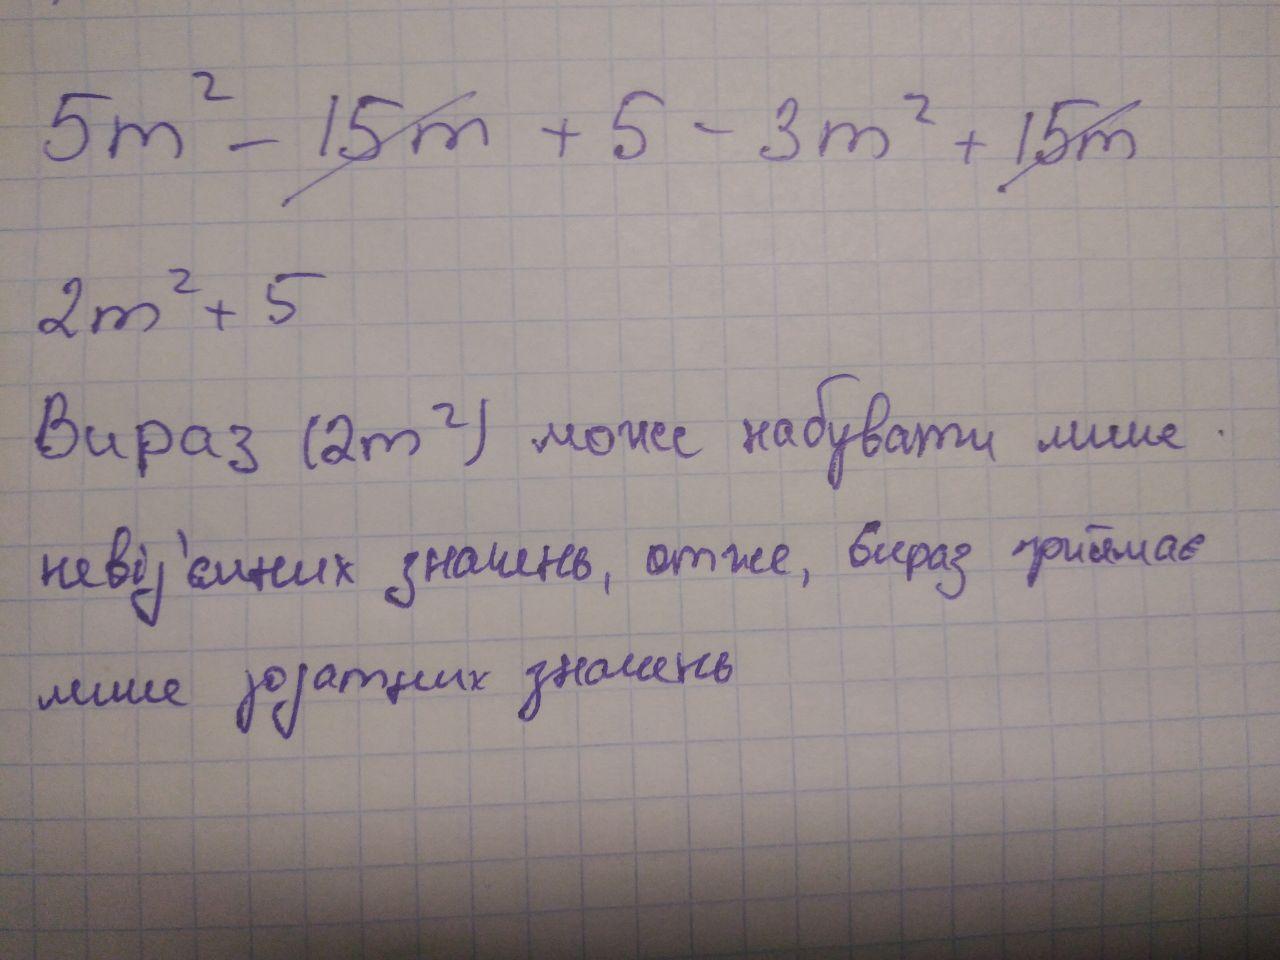 5m² - 15m + 5 - 3m² + 15m
2m² + 5
Вираз (2m²) може набувати лише
невід'ємних значень, отже, вираз приймає
лише додатних значень